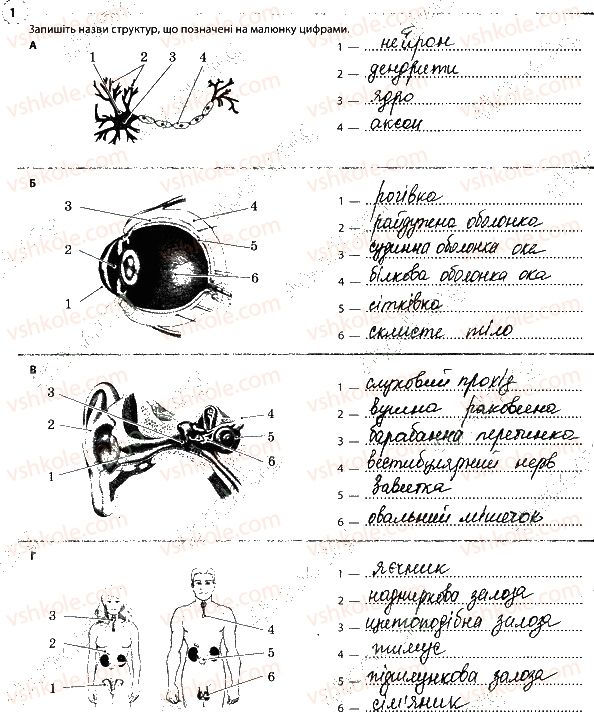 1
Запишіть назви структур, що позначені на малюнку цифрами.
А
1 2 3 4
1 — нейрон
2 — дендрити
3 — ядро
4 — аксон
Б
3 4
2 5
6
1
1 — рогівка
2 — райдужна оболонка
3 — судинна оболонка ока
4 — білкова оболонка ока
5 — сітківка
6 — склисте тіло
В
3
2 4
5
1 6
1 — слуховий прохід
2 — вушна раковина
3 — барабанна перетинка
4 — вестибулярний нерв
5 — завитка
6 — овальний мішечок
Г
3 4
2 5
1 6
1 — яєчник
2 — надниркова залоза
3 — щитоподібна залоза
4 — тимус
5 — підшлункова залоза
6 — сім'яник
vshkole.com